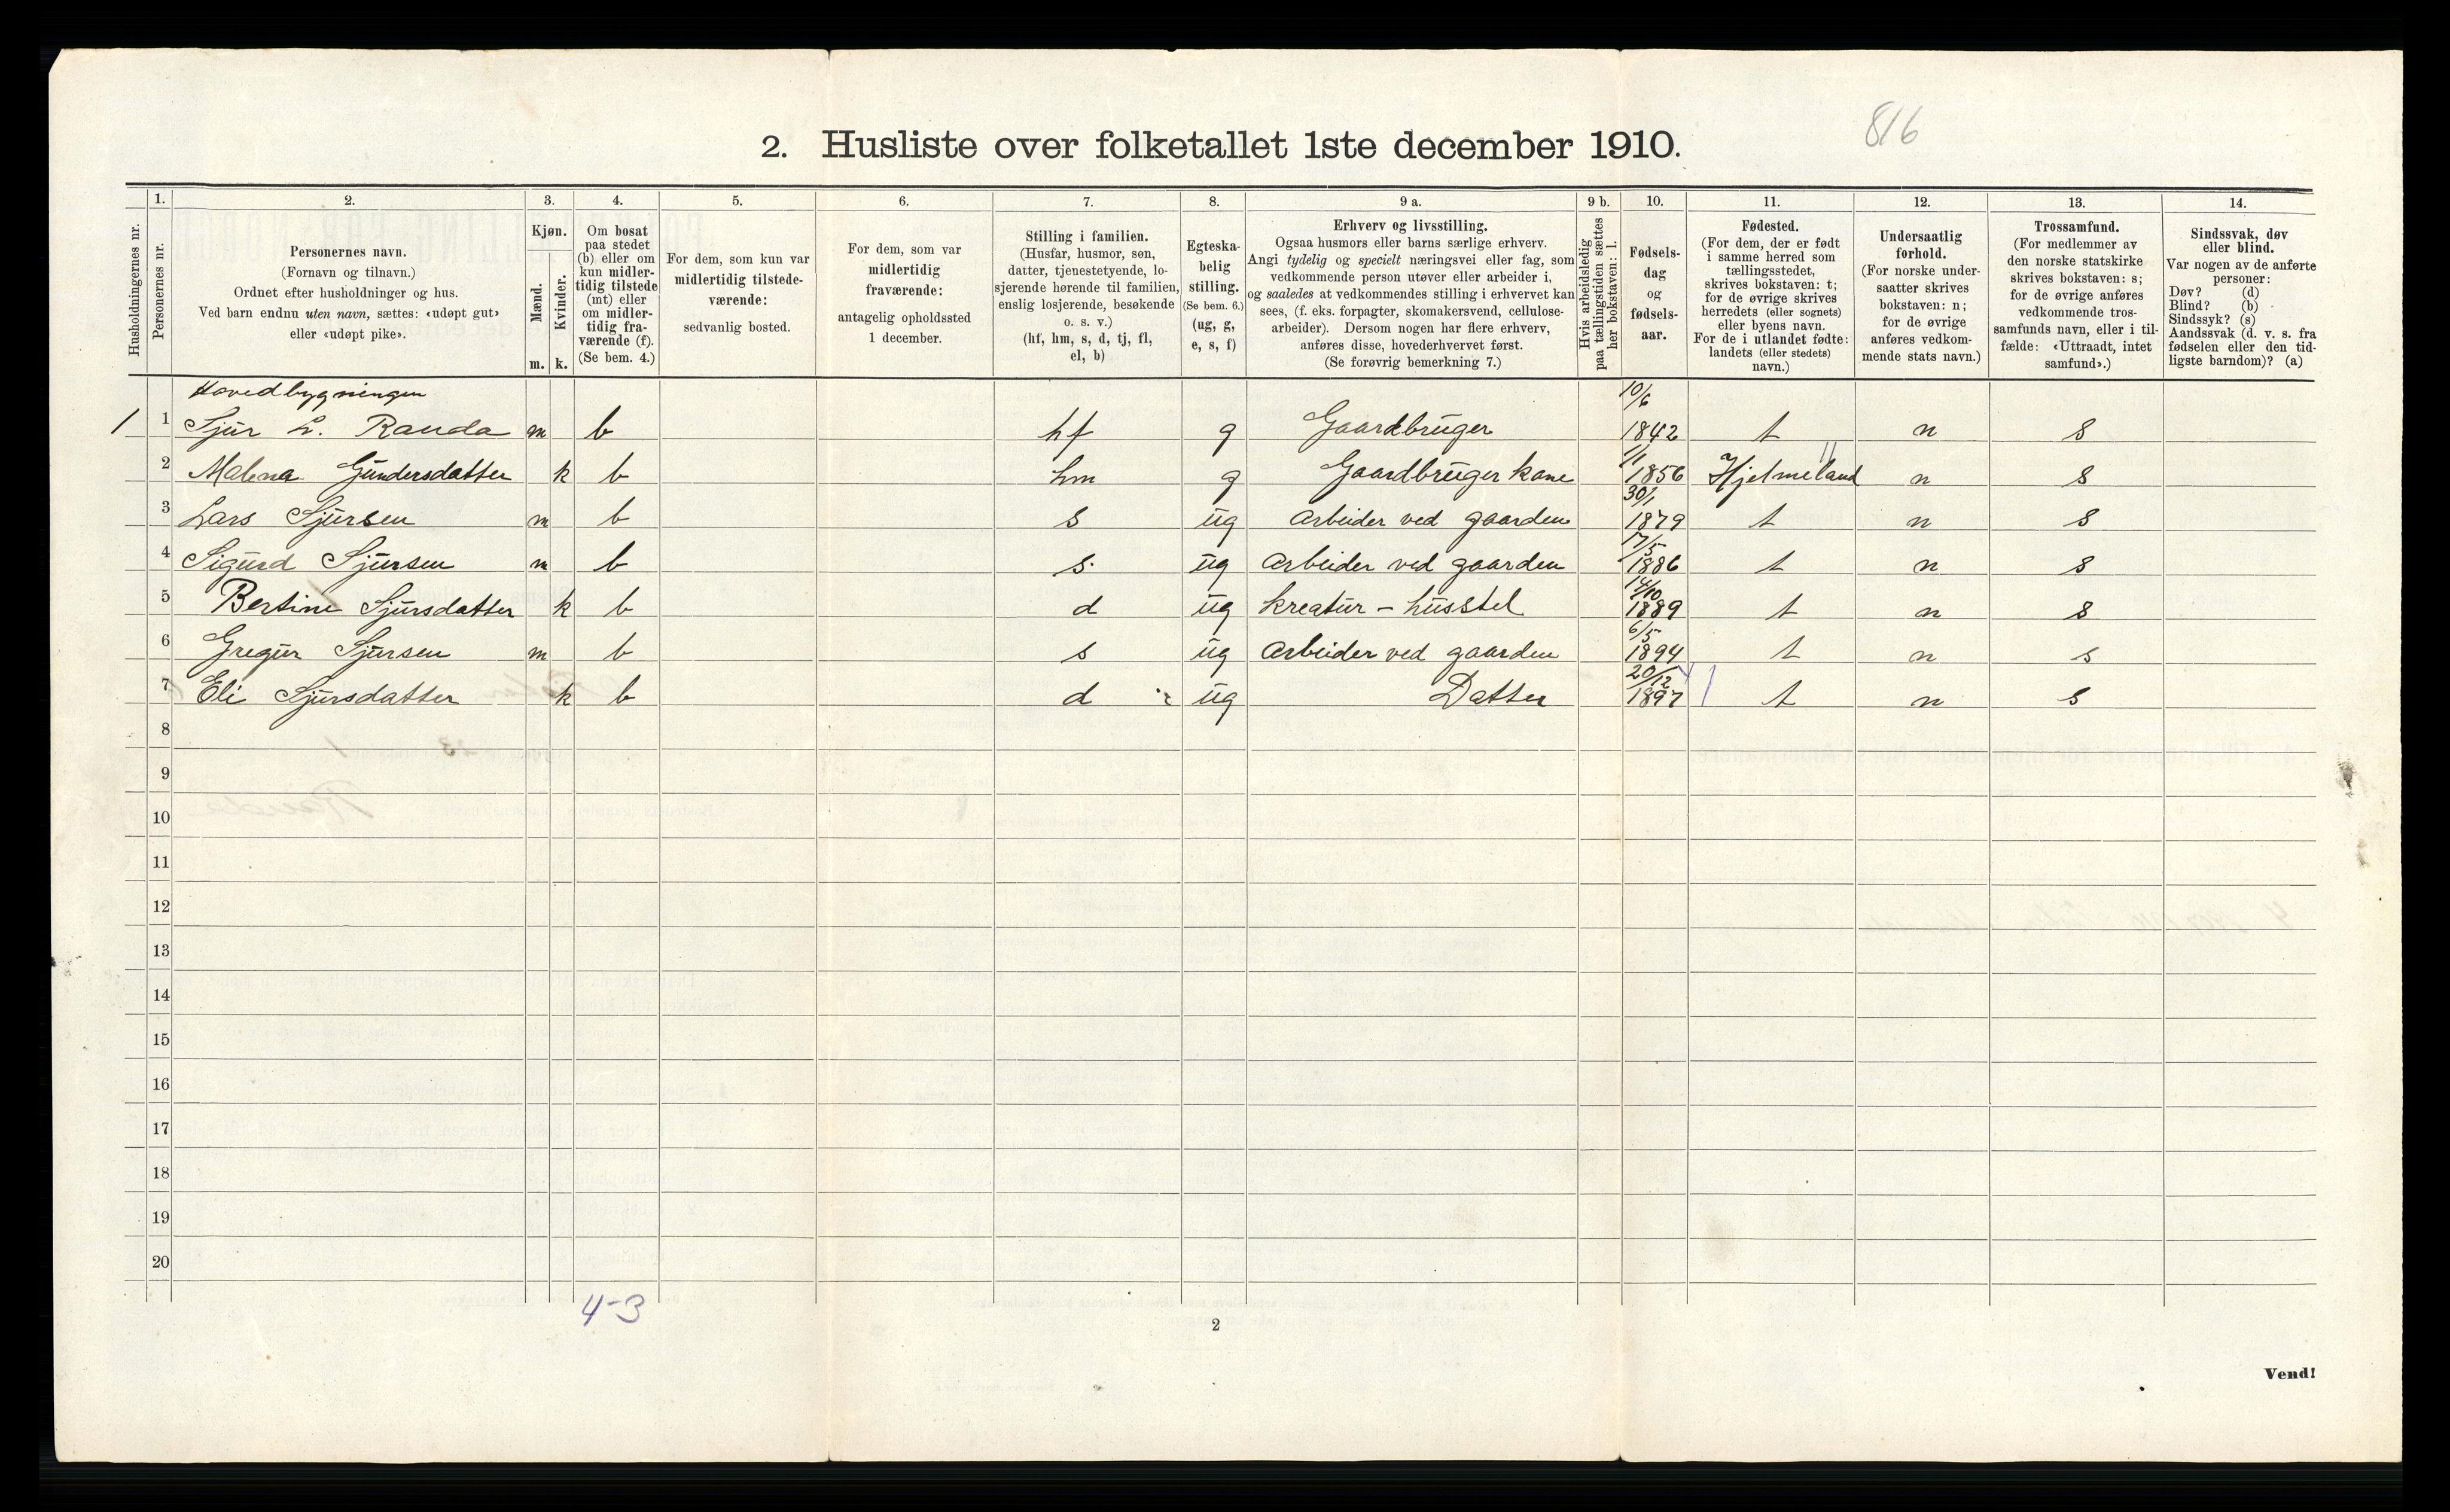 816
2. Husliste over folketallet 1ste december 1910.
Husholdningernes nr.
1.
Personernes nr.
2.
Personernes navn.
(Fornavn og tilnavn.)
Ordnet efter husholdninger og hus.
Ved barn endnu uten navn, sættes: «udøpt gut»
eller «udøpt pike».
3.
Kjøn.
Mænd.
Kvinder.
m. k.
4.
Om bosat
paa stedet
(b) eller om
kun midler-
tidig tilstede
(mt) eller
om midler-
tidig fra-
værende (f).
(Se bem. 4.)
5.
For dem, som kun var
midlertidig tilstede-
værende:
sedvanlig bosted.
6.
For dem, som var
midlertidig
fraværende:
antagelig opholdssted
1 december.
7.
Stilling i familien.
(Husfar, husmor, søn,
datter, tjenestetyende, lo-
sjerende hørende til familien,
enslig losjerende, besøkende
o. s. v.)
(hf, hm, s, d, tj, fl,
el, b)
8.
Egteska-
belig
stilling.
(Se bem. 6.)
(ug, g,
e, s, f)
9 a.
Erhverv og livsstilling.
Ogsaa husmors eller barns særlige erhverv.
Angi tydelig og specielt næringsvei eller fag, som
vedkommende person utøver eller arbeider i,
og saaledes at vedkommendes stilling i erhvervet kan
sees, (f. eks. forpagter, skomakersvend, cellulose-
arbeider). Dersom nogen har flere erhverv,
anføres disse, hovederhvervet først.
(Se forøvrig bemerkning 7.)
9 b.
Hvis arbeidsledig
paa tællingstiden sættes
her bokstaven: l.
10.
Fødsels-
dag
og
fødsels-
aar.
11.
Fødested.
(For dem, der er født
i samme herred som
tællingsstedet,
skrives bokstaven: t;
for de øvrige skrives
herredets (eller sognets)
eller byens navn.
For de i utlandet fødte:
landets (eller stedets)
navn.)
12.
Undersaatlig
forhold.
(For norske under-
saatter skrives
bokstaven: n;
for de øvrige
anføres vedkom-
mende stats navn.)
13.
Trossamfund.
(For medlemmer av
den norske statskirke
skrives bokstaven: s;
for de øvrige anføres
vedkommende tros-
samfunds navn, eller i til-
fælde: «Uttraadt, intet
samfund».)
14.
Sindssvak, døv
eller blind.
Var nogen av de anførte
personer:
Døv? (d)
Blind? (b)
Sindssyk? (s)
Aandssvak (d. v. s. fra
fødselen eller den tid-
ligste barndom)? (a)
Hovedbygningen
1 1 Sjur L. Rauda m b hf g Gaardbruger 10/6 1842 t n s
2 Malena Gundersdatter k b hm g Gaardbruger kone 1/1 1856 Hjelmeland n s
3 Lars Sjursen m b s ug Arbeider ved gaarden 30/1 1879 t n s
4 Sigurd Sjursen m b s ug Arbeider ved gaarden 17/5 1886 t n s
5 Bertine Sjursdatter k b d ug kreatur - husstel 14/10 1889 t n s
6 Gregur Sjursen m b s ug Arbeider ved gaarden 6/5 1894 t n s
7 Eli Sjursdatter k b d ug Datter 20/12 1897 t n s
8
9
10
11
12
13
14
15
16
17
18
19
20
4-3
2
Vend!